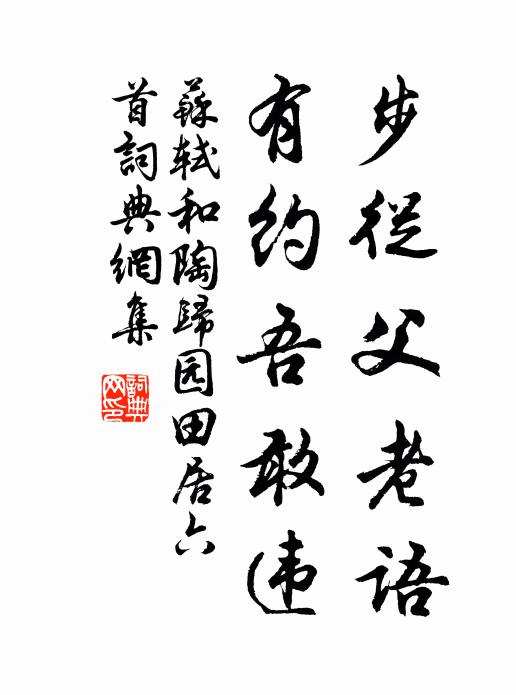 步從父老語
有約吾敢违
蘇軾和陶歸园田居六
首詞典網集
詞典
网印